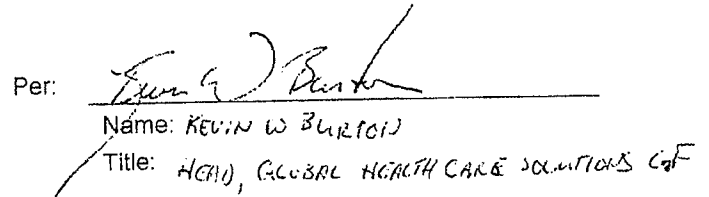 Per: Kevin W Burton
Name: KEVIN W BURTON
Title: HEAD, GLOBAL HEALTH CARE SOLUTIONS